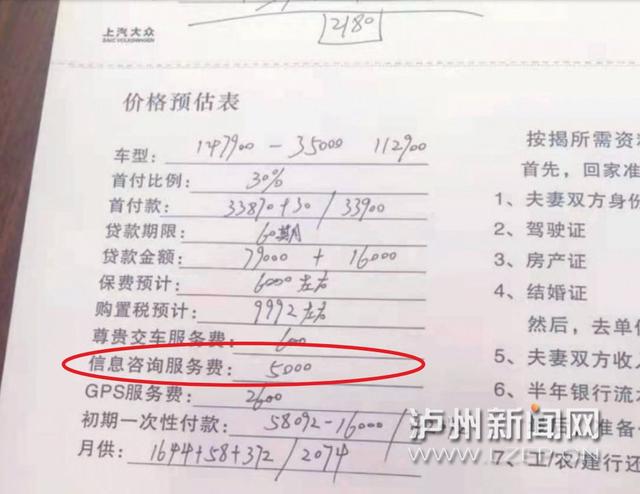 2180
上汽大众
SAIC VOLKSWAGEN
价格预估表
车型: 147900 - 35000 112900
首付比例: 30%
首付款: 33870+30 / 33900
贷款期限: 60期
贷款金额: 79000 + 16000
保费预计: 6000左右
购置税预计: 9992左右
尊贵交车服务费: 600
信息咨询服务费: 5000
GPS服务费: 2600
初期一次性付款: 58092-16000/
月供: 1644+58+372 / 2074
按揭所需资料
首先,回家准
1、夫妻双方身份
2、驾驶证
3、房产证
4、结婚证
然后,去单位
5、夫妻双方收入
6、半年银行流水
准备
7、工/农/建行还
泸州新闻网